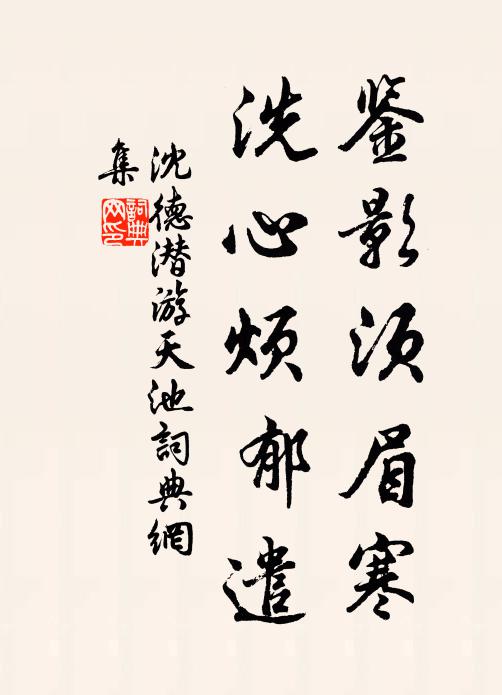 鉴影须眉寒
洗心烦郁遣
沈德潜游天池詞典網
集
詞典
网印